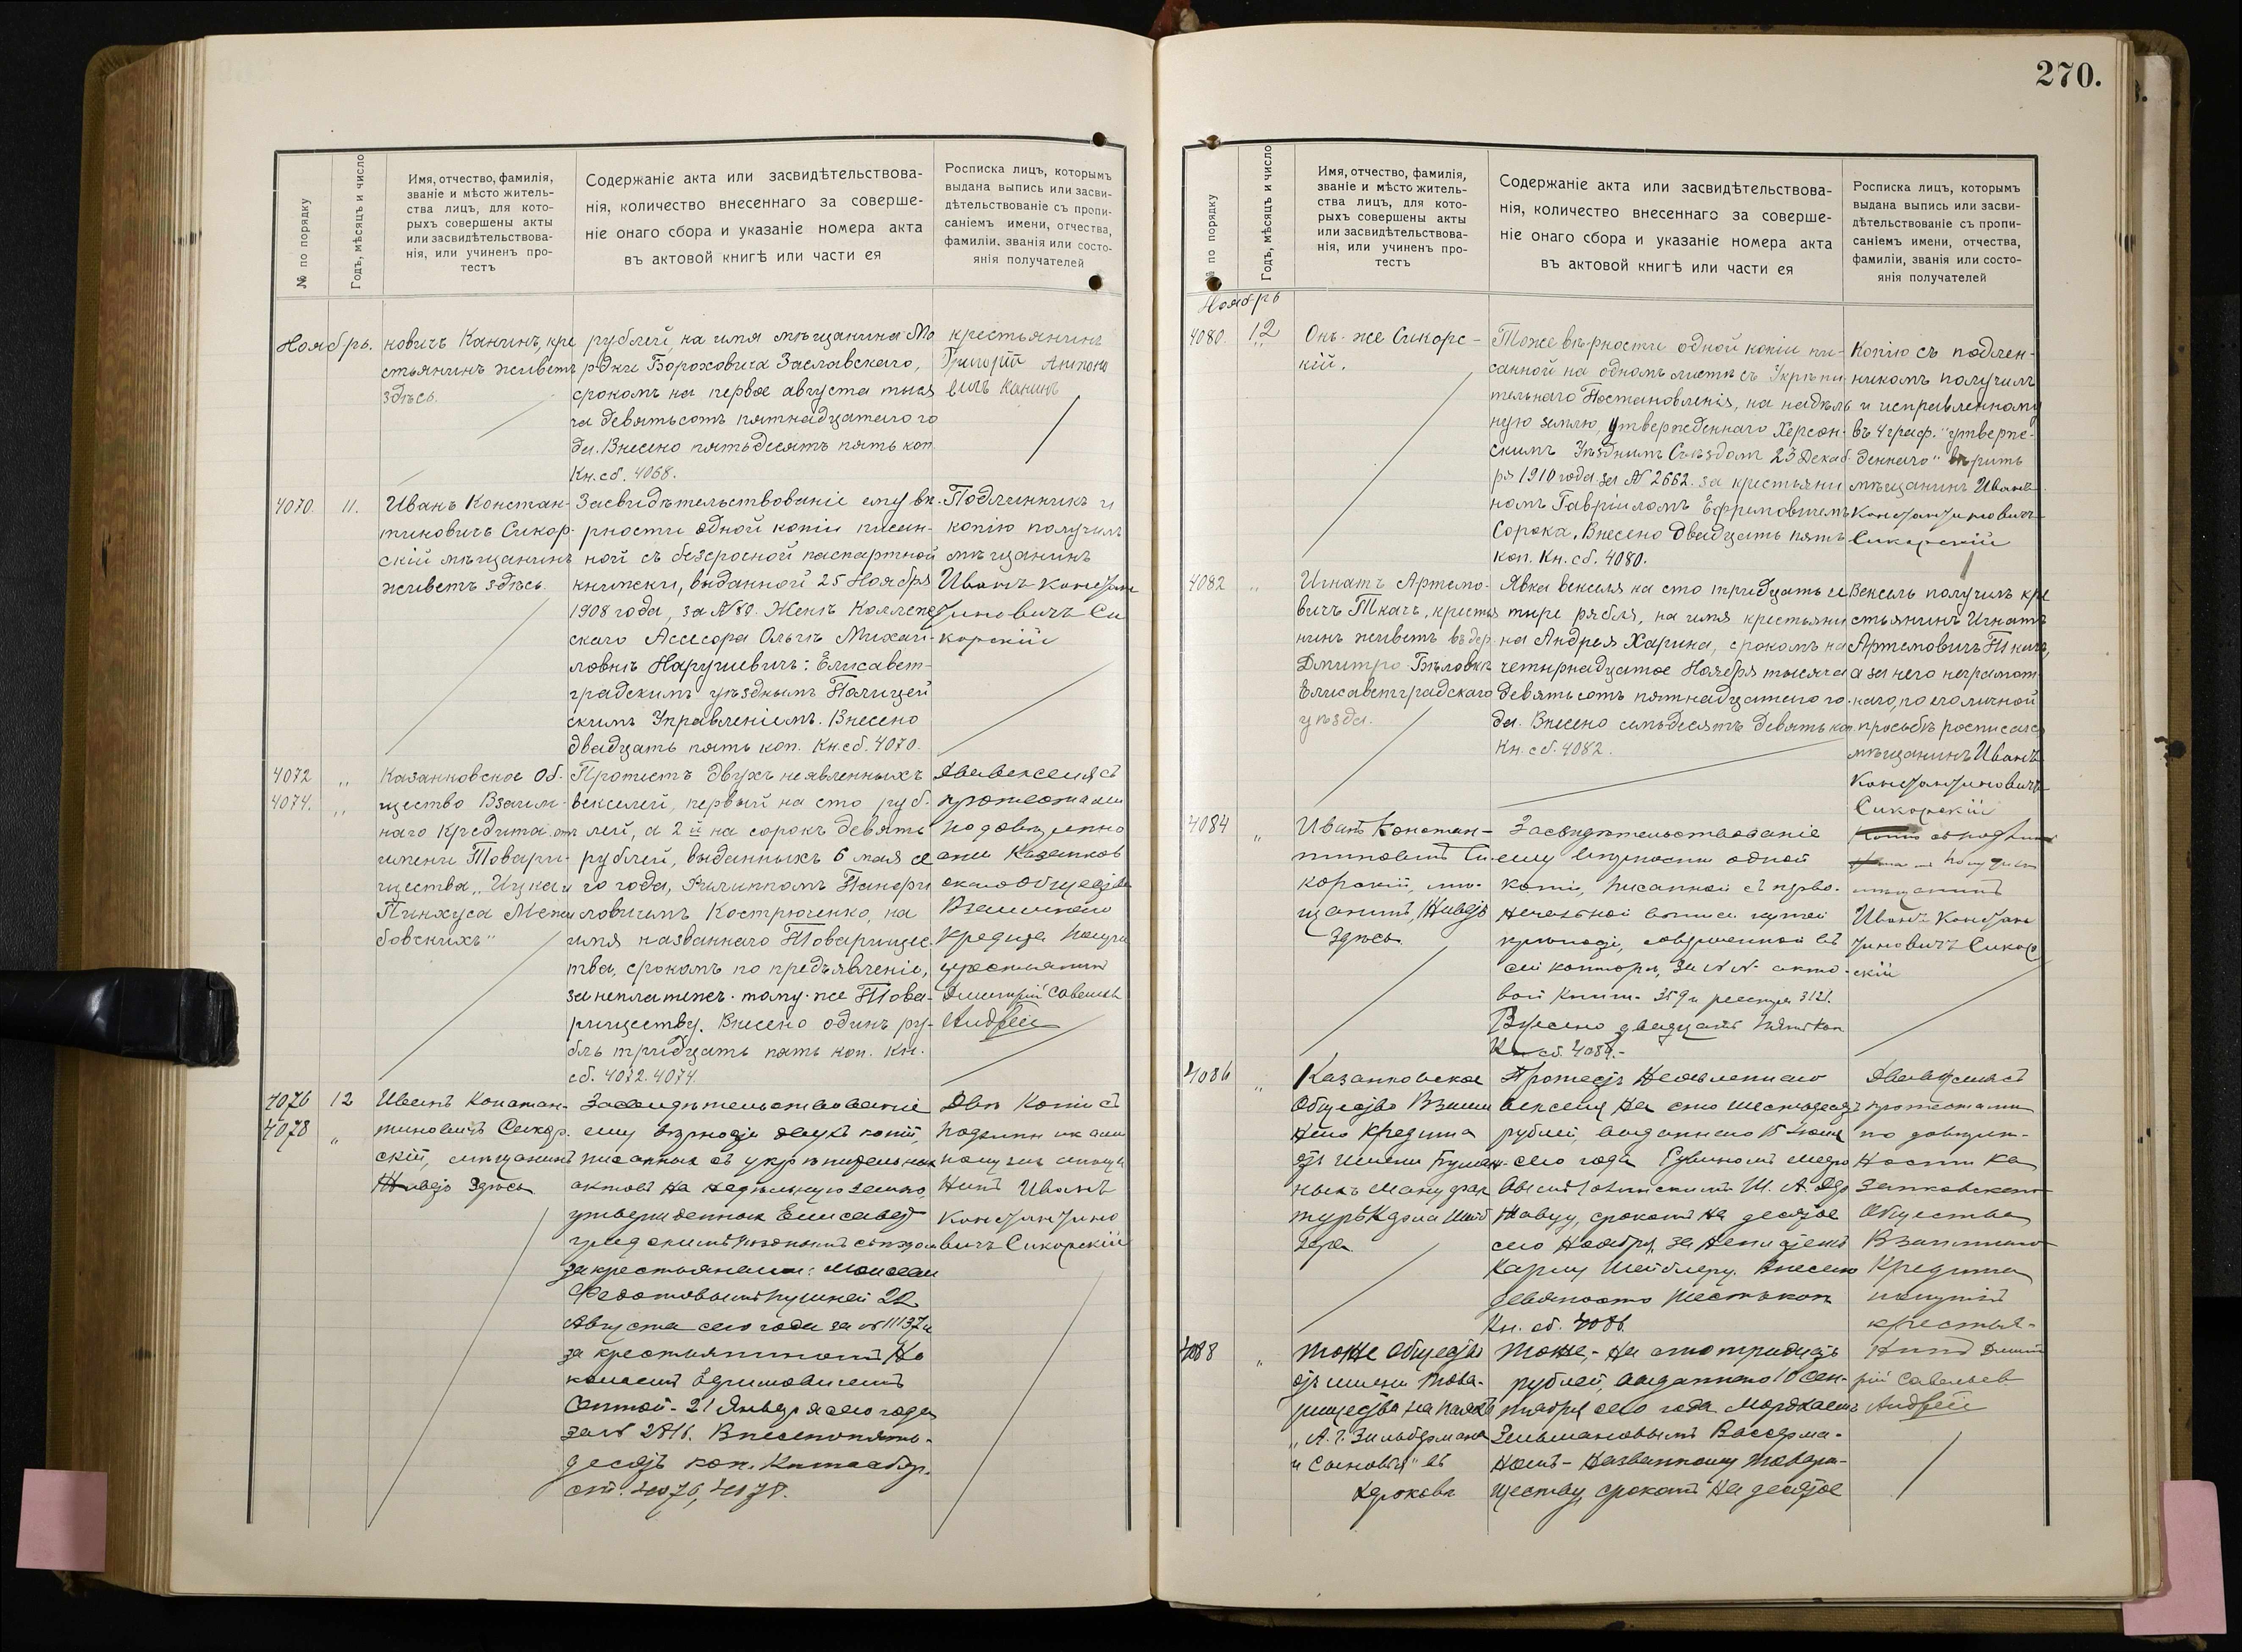 270.
№ по порядку
Годъ, мѣсяцъ и число
Имя, отчество, фамилія,
званіе и мѣсто житель-
ства лицъ, для кото-
рыхъ совершены акты
или засвидѣтельствова-
нія, или учиненъ про-
тестъ
Содержаніе акта или засвидѣтельствова-
нія, количество внесеннаго за соверше-
ніе онаго сбора и указаніе номера акта
въ актовой книгѣ или части ея
Росписка лицъ, которымъ
выдана выпись или засви-
дѣтельствованіе съ пропи-
саніемъ имени, отчества,
фамиліи, званія или состо-
янія получателей
Ноябрь.
новичъ Канинъ, кре
стьянинъ живетъ
здѣсь.
рублей на имя мѣщанина Мо
рдки Бороховича Заславскаго,
срокомъ на первое августа тыся
ча девятьсотъ пятнадцатаго го
да. Внесено пятьдесятъ пять коп
Кн. сб. 4068.
крестьянинъ
Григорій Антоно
вичъ Канинъ
4070. 11.
Иванъ Констан-
тиновичъ Сикор-
скій мѣщанинъ
живетъ здѣсь
Засвидѣтельствованіе ему вѣ-
рности одной копіи писан-
ной съ безсрочной паспартной
книжки, выданной 25 Ноября
1908 года, за №80. Женѣ Коллеж
скаго Ассесора Ольгѣ Михай-
ловнѣ Нарушевичъ: Елисавет-
градскимъ уѣзднымъ Полицей
скимъ Управленіемъ. Внесено
двадцать пять коп. Кн. сб. 4070.
Подлинникъ и
копію получилъ
мѣщанинъ
Иванъ Констан
тиновичъ Си
корскій
4072 „
4074. „
Казанковское Об-
щество Взаим-
наго Кредита от
имени Товари-
щества „Ицка и
Пинхуса Межи
бовскихъ"
Протестъ двухъ неявленныхъ
векселей, первый на сто руб-
лей, а 2й на сорокъ девять
рублей, выданныхъ 6 мая се
го года, Филиппомъ Панфи
ловичемъ Костюченко, на
имя названнаго Товарищес-
тва, срокомъ по предъявленіе,
за неплатежъ тому-же Това-
риществу. Внесено одинъ ру-
бль тридцать пять коп. Кн.
сб. 4072. 4074.
Два векселя съ
протестами
по довѣренно
сти Казанков
скаго Общества
Взаимнаго
Кредита получи
крестьянинъ
Дмитрій Савельев
Андрей
4076 12
4078 „
Иванъ Констан-
тиновичъ Сикор-
скій, мѣщанинъ
Живетъ здѣсь
Засвидѣтельствованіе
ему вѣрности двухъ копій,
писанныхъ съ укрѣпительныхъ
актовъ на надѣльную землю,
утвержденныхъ Елисавет
градскимъ уѣзднымъ съѣздом
за крестьянами: Моисеем
Федотовымъ
Августа сего года за № 11137 и
за крестьяниномъ
Ефимовичемъ
21 Января сего года
за № 2816. Внесено пять-
десятъ коп. Книга сбор.
ст. 4076, 4078.
Двѣ копіи съ
подлинниками
получилъ мѣща
нинъ Иванъ
Константино
вичъ Сикорскій
№ по порядку
Годъ, мѣсяцъ и число
Имя, отчество, фамилія,
званіе и мѣсто житель-
ства лицъ, для кото-
рыхъ совершены акты
или засвидѣтельствова-
нія, или учиненъ про-
тестъ
Содержаніе акта или засвидѣтельствова-
нія, количество внесеннаго за соверше-
ніе онаго сбора и указаніе номера акта
въ актовой книгѣ или части ея
Росписка лицъ, которымъ
выдана выпись или засви-
дѣтельствованіе съ пропи-
саніемъ имени, отчества,
фамиліи, званія или состо-
янія получателей
Ноябрь
4080. 12
Онъ-же Сикорс-
кій.
Тоже вѣрности одной копіи пи-
санной на одномъ листѣ съ Укрѣпи-
тельнаго Постановленія, на надѣль
ную землю, утвержденнаго Херсон-
скимъ Уѣзднымъ Съѣздомъ 23 Декаб-
ря 1910 года за № 2662. за крестьяни
номъ Гавріиломъ Ефимовичемъ
Сорока. Внесено двадцать пять
коп. Кн. сб. 4080.
Копію съ подлин-
никомъ получилъ
и исправленному
въ 4 граф. „утверж-
деннаго" вѣрить
мѣщанинъ Иванъ
Константиновичъ
Сикорскій
4082 „
Игнатъ Артемо-
вичъ Ткачъ, крестья
нинъ живетъ въ дер.
Дмитро-Бѣловкѣ
Елисаветградскаго
уѣзда.
Явка векселя на сто тридцать че
тыре рубля, на имя крестьяни
на Андрея Харина, срокомъ на
четырнадцатое Ноября тысяча
девятьсотъ пятнадцатаго го-
да. Внесено семьдесятъ девять коп.
Кн. сб. 4082.
Вексель получилъ кре
стьянинъ Игнатъ
Артемовичъ Ткачъ,
а за него неграмот
наго, по его личной
просьбѣ росписался
мѣщанинъ Иванъ
Константиновичъ
Сикорскій
4084 „
Иванъ Констан-
тиновичъ Си-
корскій, мѣ-
щанинъ, Живетъ
здѣсь
Засвидѣтельствованіе
ему вѣрности одной
копіи, писанной съ
выписи купчей
крѣпости, совершенной въ
сей конторѣ, за № № акто-
вой книги 359 и реестра 3121.
Внесено двадцать пять коп
Кн. сб. 4084.-
получилъ
мѣщанинъ
Иванъ Констан
тиновичъ Сикор
скій
4086 „
Казанковское
Общество Взаим
наго Кредита
отъ имени
Протестъ неявленнаго
векселя на сто шестьдесятъ
рублей, выданнаго 15 Іюня
сего года
срокомъ на десятое
сего Ноября, за неплатежъ
Карлу Шейблеру. Внесено
девяносто шесть коп
Кн. сб. 4086.
Два векселя съ
протестами
по довѣрен-
ности Ка
занковскаго
Общества
Взаимнаго
Кредита
получилъ
крестья-
нинъ Дмит
рій Савельев
Андрей
4088 „
Тоже Общество
отъ имени Това-
рищества на паяхъ
„А. Г. Зильберманъ
и Сыновья" въ
Тоже,- на сто тридцать
рублей, выданнаго 10 Сен-
тября сего года Мордхаемъ
Зельмановымъ Вассерма-
номъ - названному Товари-
ществу, срокомъ на десятое